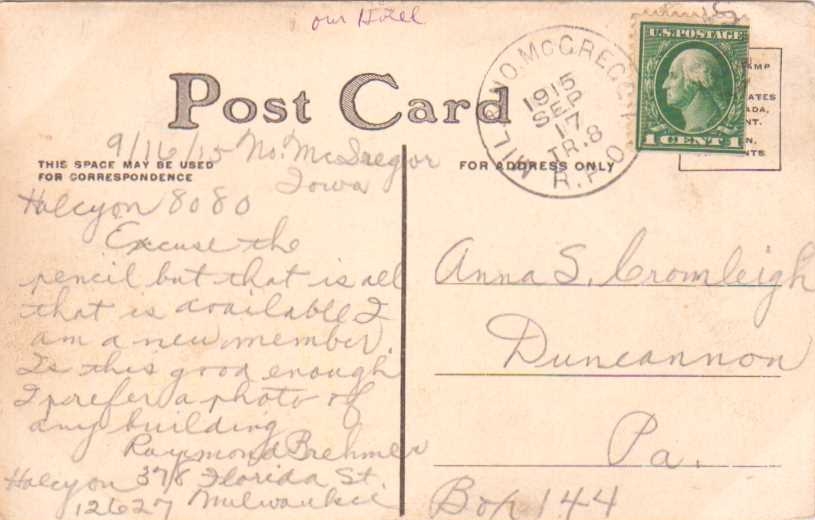 our Hotel
Post Card
THIS SPACE MAY BE USED
FOR CORRESPONDENCE
9/16/15 No. McGregor
Iowa
Halcyon 8080
Excuse the
pencil but that is all
that is available I
am a new member.
Is this good enough
I prefer a photo of
any building
Raymond Brehmer
Halcyon 378 Florida St.
12627 Milwaukee
MIL. & NO. MCGREGOR
SEP 17
1915
TR. 8
R.P.O.
U.S. POSTAGE
1 CENT 1
FOR ADDRESS ONLY
Anna S. Cromleigh
Duncannon
Pa.
Box 144